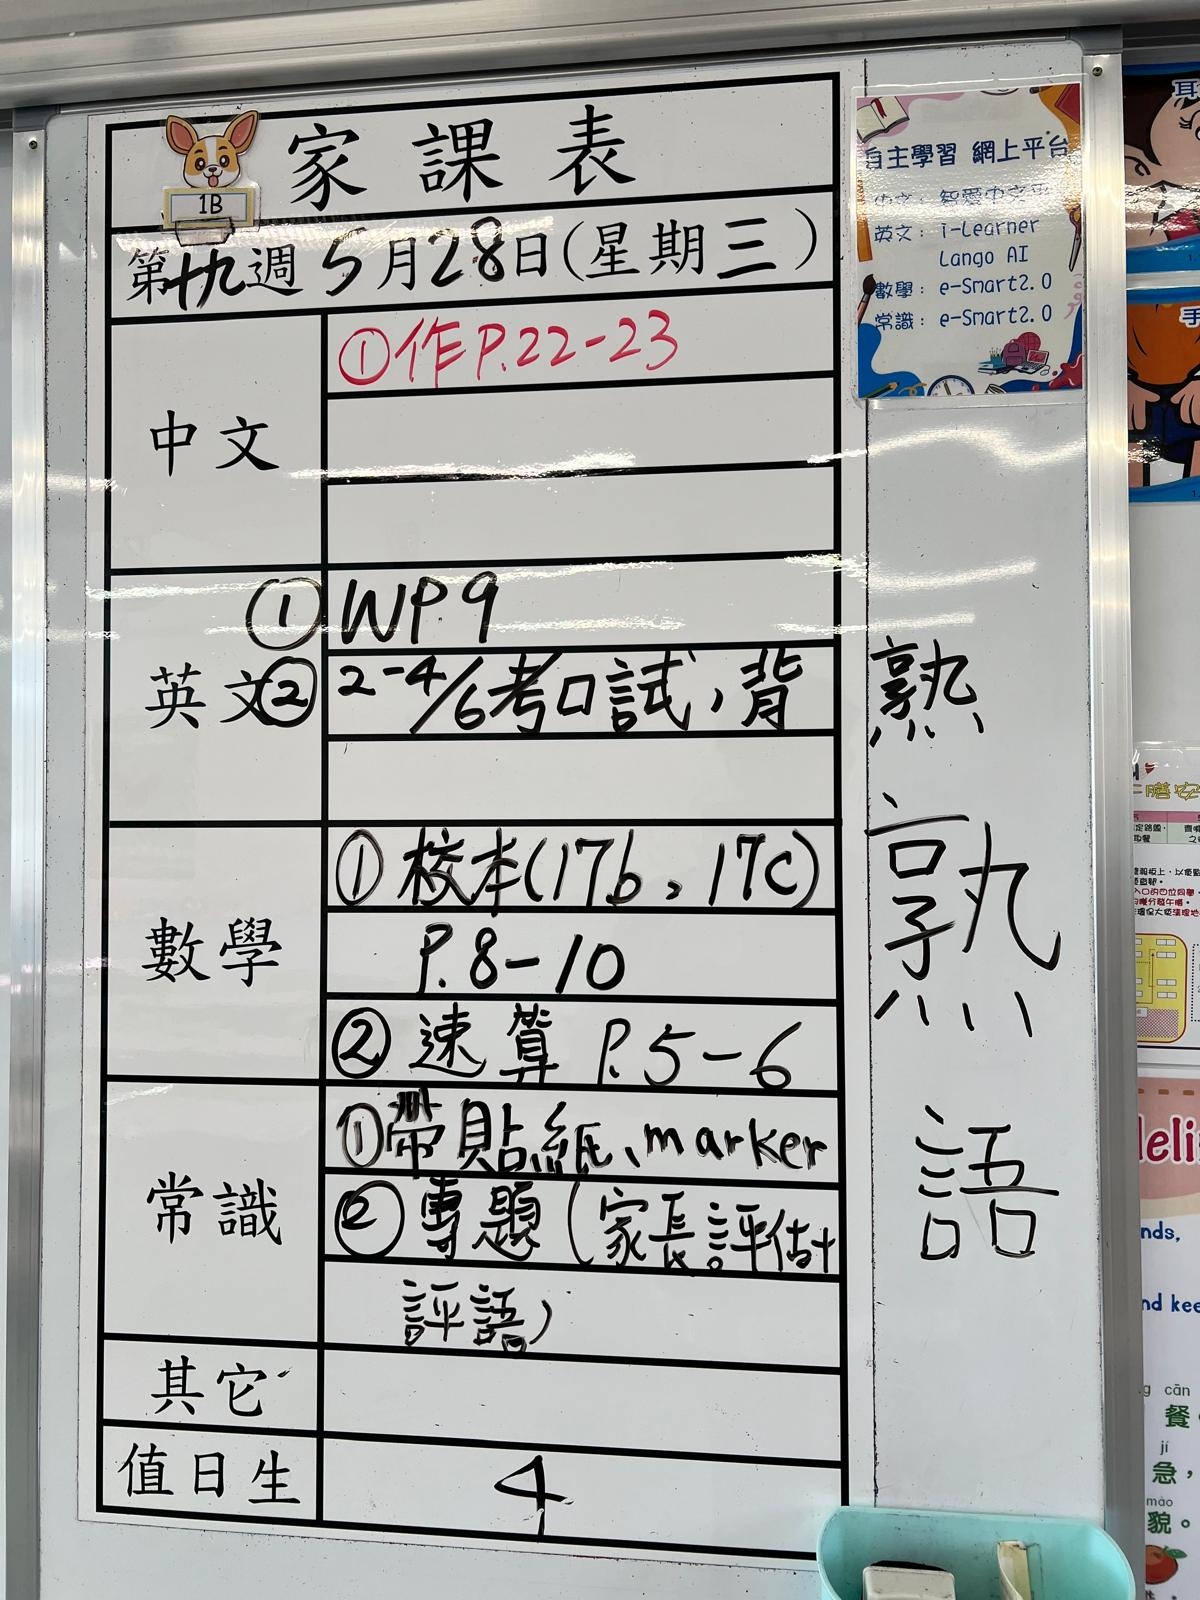 家課表
1B
第十九週 5月28日(星期三)
中文
①作P.22-23
英文
① WP9
② 2-4/6考口試，背
熟熟語
數學
① 校本(17b，17c)
P.8-10
② 速算 P.5-6
常識
①帶貼紙、marker
② 專題(家長評估+
評語)
其它
值日生
4
自主學習 網上平台
英文：i-Learner
Lango AI
數學：e-Smart2.0
常識：e-Smart2.0
耳
手
nds,
nd kee
cān
餐
jí
急，
mào
貌。